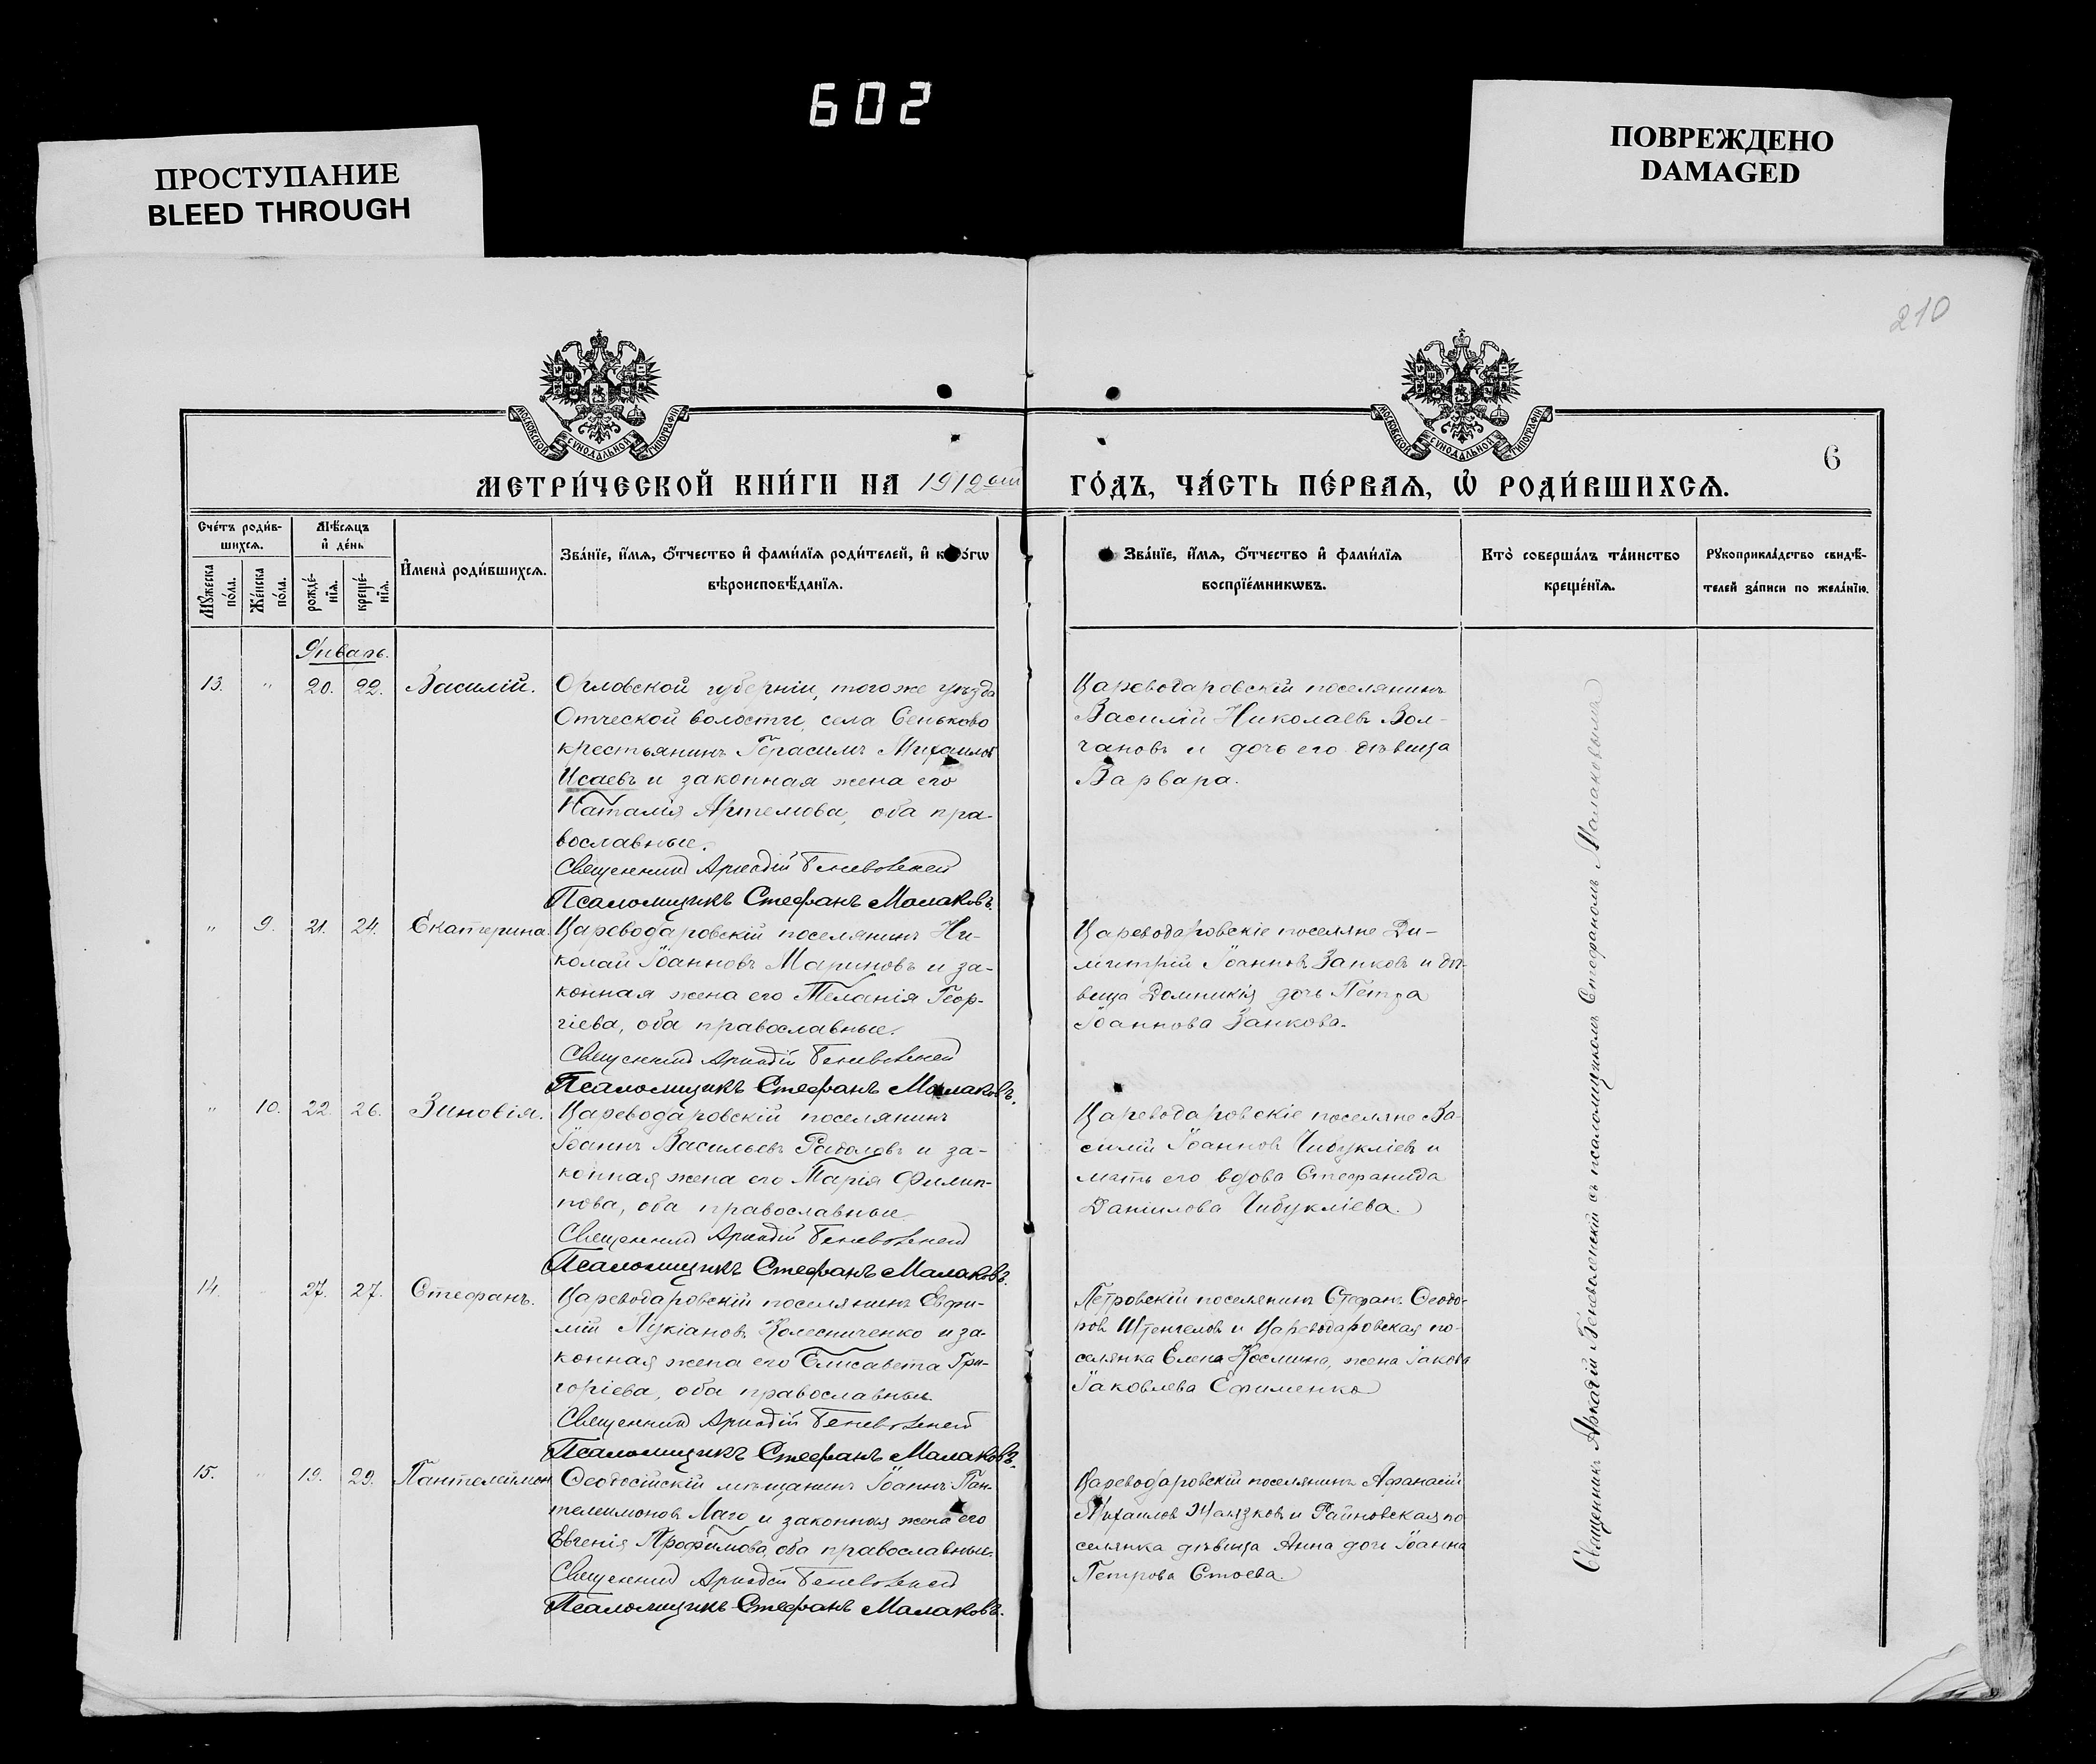 602
ПРОСТУПАНИЕ
BLEED THROUGH
ПОВРЕЖДЕНО
DAMAGED
210
МОСКОВСКОЙ СУНОДАЛЬНОЙ ТИПОГРАФІИ
МОСКОВСКОЙ СУНОДАЛЬНОЙ ТИПОГРАФІИ
6
МЕТРИ́ЧЕСКОЙ КНИ́ГИ НА 1912 ый ГО́ДЪ, ЧА́СТЬ ПЕ́РВАѦ, Ѡ҆ РОДИ́ВШИХСѦ.
Сче́тъ роди́в-
шихсѧ.
Мꙋ́жеска по́ла.
Же́нска по́ла.
Мѣ́сѧцъ
и҆ де́нь
рожде́-
нїѧ.
креще́-
нїѧ.
И҆мена̀ роди́вшихсѧ.
Зва́нїе, и҆́мѧ, ѻ҆́тчество и҆ фами́лїѧ роди́телей, и҆ ко́гѡ
вѣроисповѣ́данїѧ.
Зва́нїе, и҆́мѧ, ѻ҆́тчество и҆ фами́лїѧ
воспрїе́мникѡвъ.
Кто̀ соверша́лъ та́инство
креще́нїѧ.
Рꙋкоприкла́дство свидѣ́-
телей за́писи по жела́нїю.
Январь.
13. " 20. 22. Василій.
Орловской губерніи, того же уѣзда
волости, села Сеньково
крестьянинъ Герасимъ Михаиловъ
Исаевъ и законная жена его
Наталія Артемова, оба пра-
вославные.
Священникъ Аркадій Беневоленскій
Псаломщикъ Стефанъ Малаковъ.
Цареводаровскій поселянинъ
Василій Николаевъ Вол-
чановъ и дочь его дѣвица
Варвара.
" 9. 21. 24. Екатерина.
Цареводаровскій поселянинъ Ни-
колай Іоанновъ Мариновъ и за-
конная жена его Меланія Геор-
гіева, оба православные.
Священникъ Аркадій Беневоленскій
Псаломщикъ Стефанъ Малаковъ.
Цареводаровскіе поселяне Ди-
митрій Іоанновъ Занковъ и дѣ-
вица Домникія дочь Петра
Іоаннова Занкова.
" 10. 22. 26. Зиновія.
Цареводаровскій поселянинъ
Іоаннъ Васильевъ Радоловъ и за-
конная жена его Марія Филип-
пова, оба православные
Священникъ Аркадій Беневоленскій
Псаломщикъ Стефанъ Малаковъ.
Цареводаровскіе поселяне Ва-
силій Іоанновъ Чибукліевъ и
мать его вдова Стефанида
Даніилова Чибукліева.
14. " 27. 27. Стефанъ.
Цареводаровскій поселянинъ Евфи-
мій Лукіановъ Колесниченко и за-
конная жена его Елисавета Гри-
горіева, оба православные.
Священникъ Аркадій Беневоленскій
Псаломщикъ Стефанъ Малаковъ.
Петровскій поселянинъ Стефанъ Ѳеодо-
ровъ и Цареводаровская по-
селянка Елена Космина, жена Іакова
Іаковлева Ефименко
15. " 19. 29. Пантелеймон
Ѳеодосійскій мѣщанинъ Іоаннъ Пан-
телеимоновъ Лаго и законная жена его
Евгенія Трофимова, оба православные.
Священникъ Аркадій Беневоленскій
Псаломщикъ Стефанъ Малаковъ.
Цареводаровскій поселянинъ Афанасій
Михаиловъ и Райновская по-
селянка дѣвица Анна дочь Іоанна
Петрова Стоева.
Священникъ Аркадій Беневоленскій съ псаломщикомъ Стефаномъ Малаковымъ